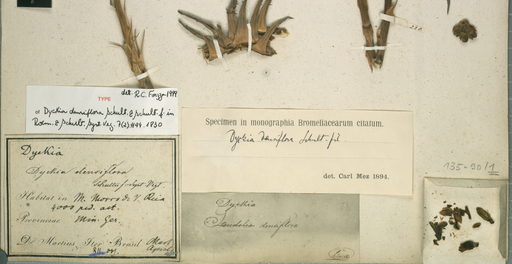 det. R.C. Forzza 1999
TYPE
Dyckia densiflora Schult. & Schult. f. in
Roem. & Schult. Syst. Veg. 7(2): 1194. 1830
Specimen in monographia Bromeliacearum citatum.
Dyckia densiflora Schult. fil
det. Carl Mez 1894.
Dyckia
Dyckia densiflora
Schultes f. Syst. Veg.
Habitat in M. Morro de V. Rica
4000 ped. alt.
Provinciae Min. Ger.
D. Martius, Iter Brasil.
Dyckia
densiflora
135-90/1